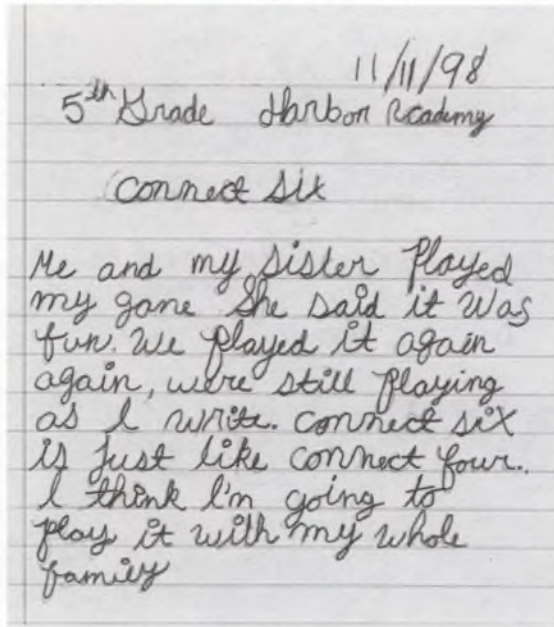 11/11/98
5th Grade Harbon Academy
Connect Six
Me and my sister Played
my game She said it Was
fun. We played it again
again, were still playing
as I write. Connect six
is just like connect four.
I think I'm going to
play it with my whole
family